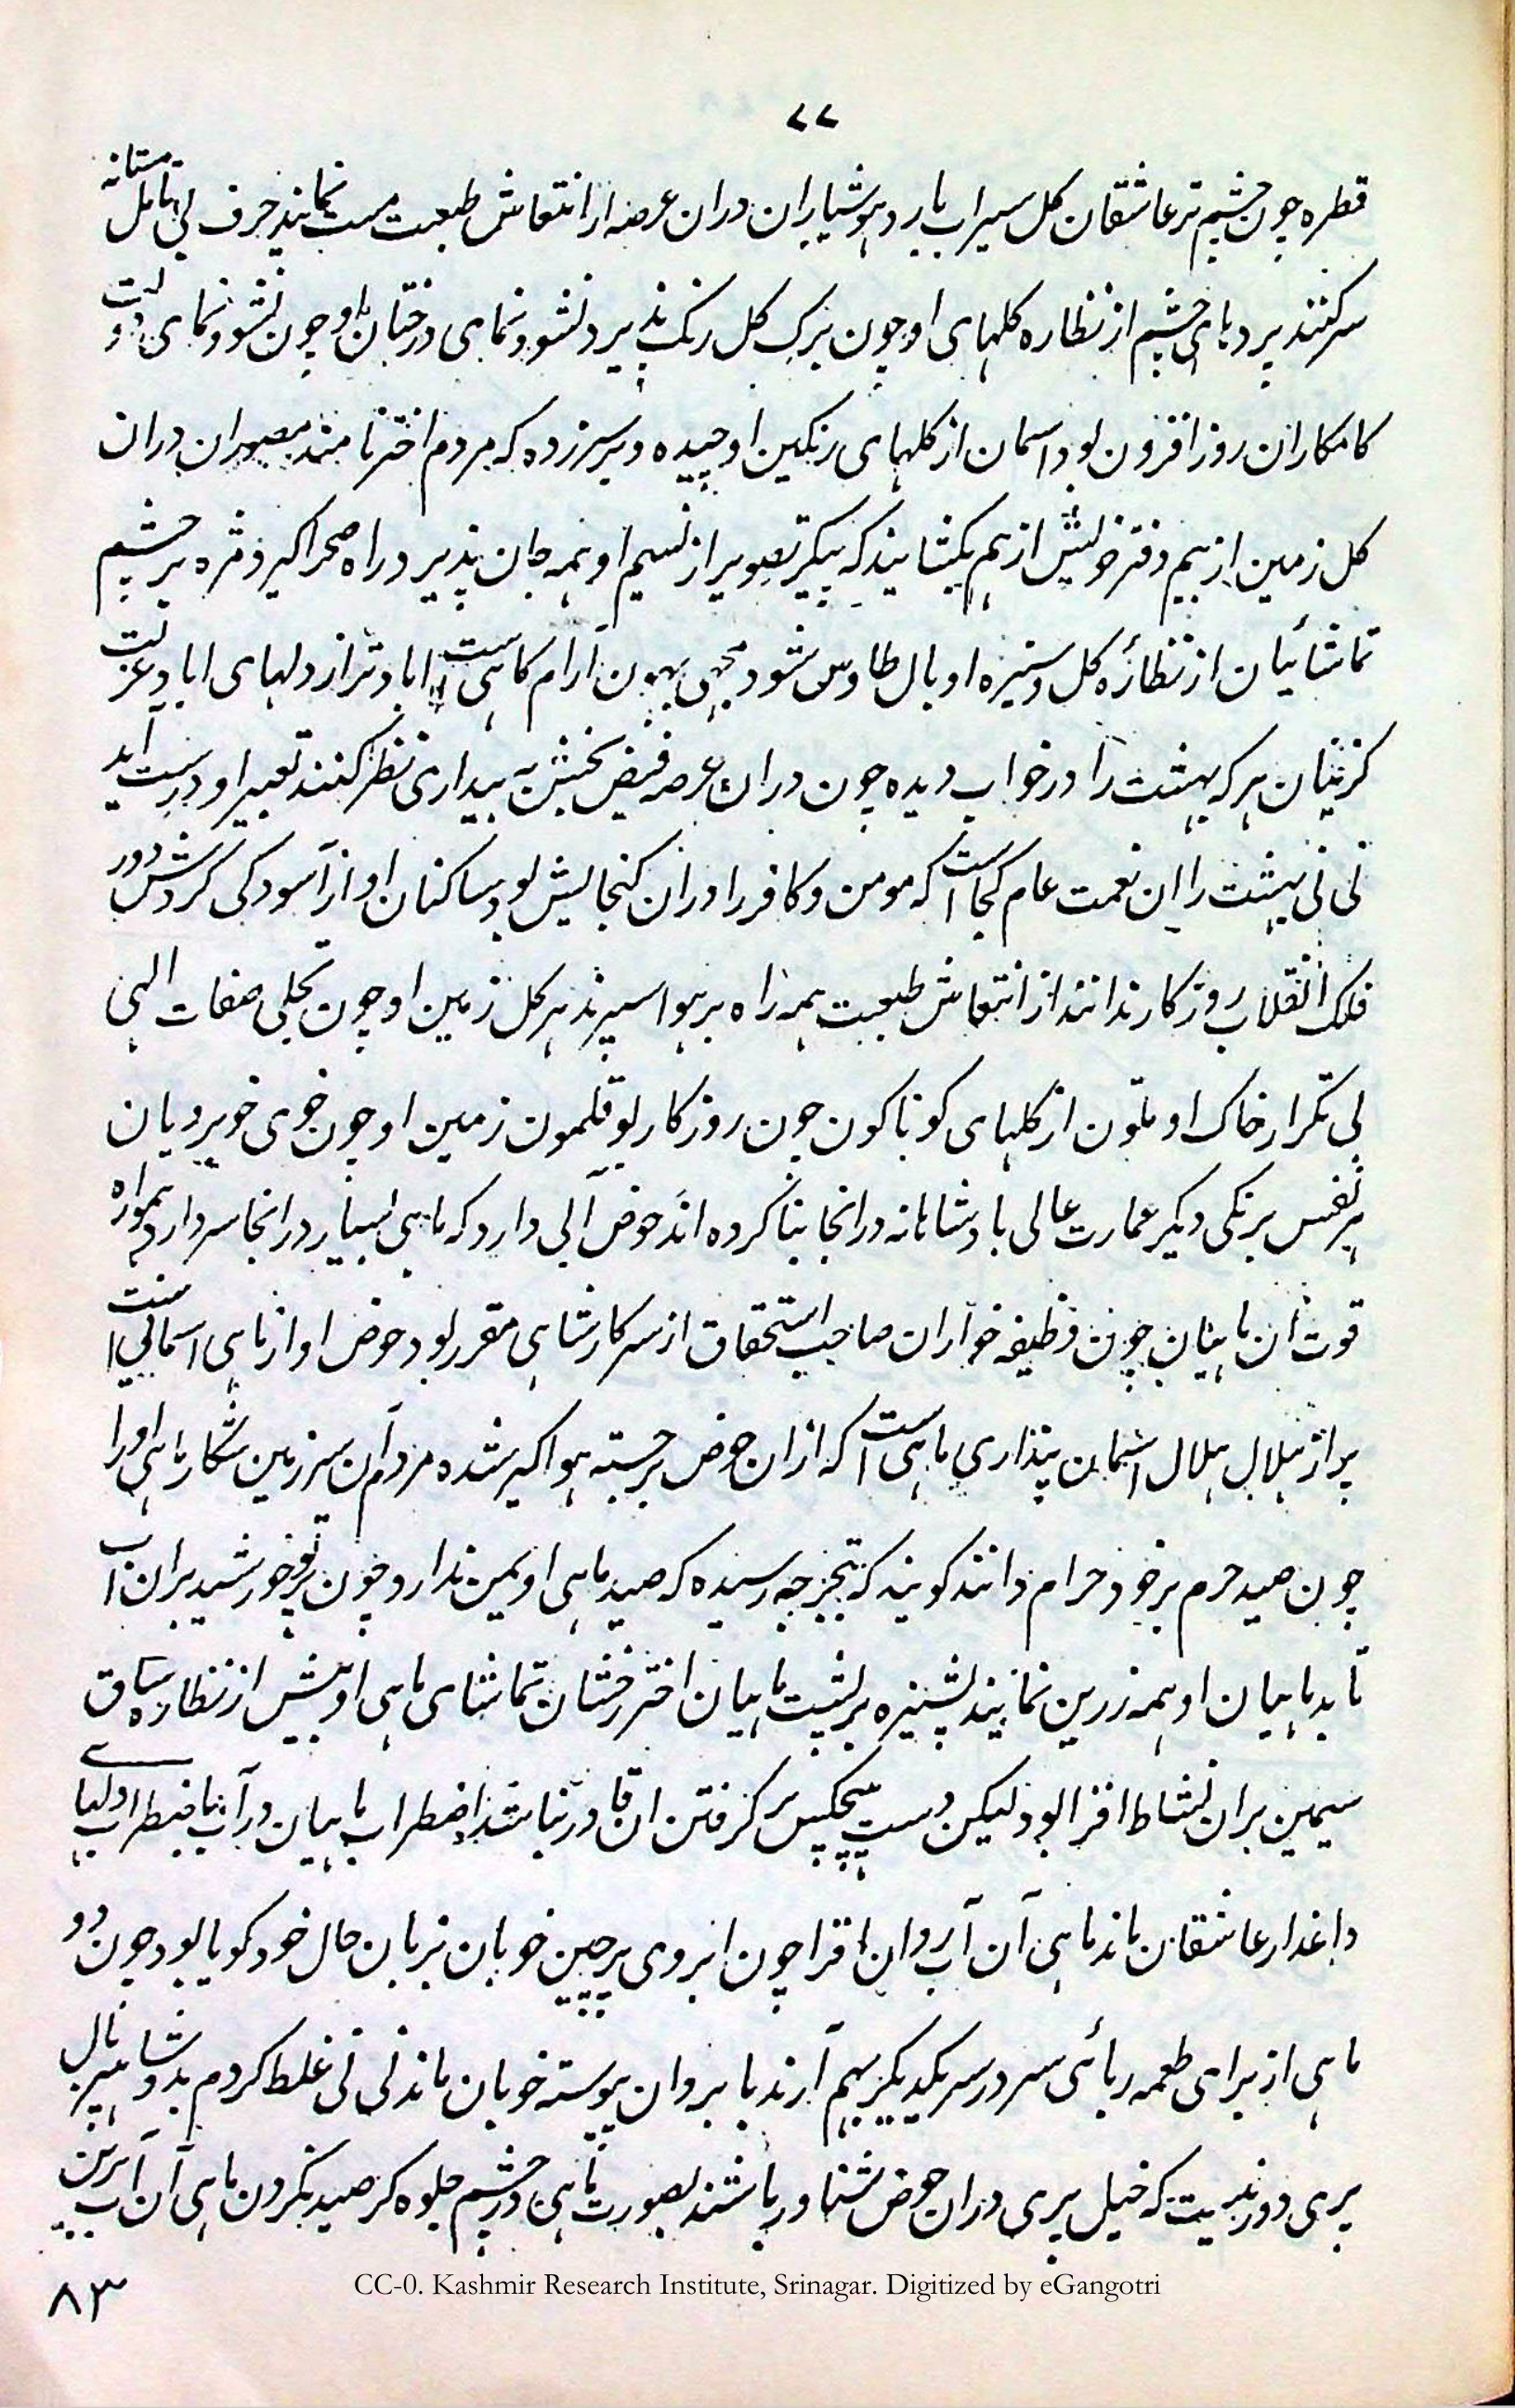 ۷۷
قطره چون چشم تر عاشقان کل سیراب بارد هوشیاران دران عرصه از انتعاش طبیعت مست نمایند حرف بی تامل مستانه
سرکنند پردهای چشم از نظاره کلهای او چون برک کل رنک پذیرد نشو و نمای درختان او چون نشو و نمای دولت
کامکاران روز افزون بود اسمان از کلهای رنکین او چیده و برسر زده که مردم اختر نامند مصوران دران
کل زمین از بیم دفتر خویش از هم نکشایند که پیکر تصویر از نسیم او همه جان پذیرد و راه صحرا کیرد مژه بر چشم
تماشائیان از نظارهٔ کل و سبزه او بال طاوس شود مچهی بهون آرام کاهی است اباد تر از دلهای اباد عزلت
کزینان هر که بهشت را در خواب دیده چون دران عرصه فیض بخش به بیداری نظر کنند تعبیر او درست آید
نی نی بهشت را این نعمت عام کجا است که مومن و کافر را دران کنجایش بود ساکنان او از آسودکی کردش دور
فلک انقلاب روزکار ندانند از انتعاش طبیعت همه راه بر هوا سپرند هر کل زمین او چون تجلی صفات الهی
بی تکرار خاک او ملون از کلهای کوناکون چون روزکار بوقلمون زمین او چون خوی خوبرویان
هر نفس برنکی دیکر عمارت عالی بادشاهانه درانجا بنا کرده اند حوض آبی دارد که ماهی بسیار درانجا سر دارد همواره
قوت آن ماهیان چون وظیفه خواران صاحب استحقاق از سرکار شاهی مقرر بود حوض او از ماهی اسمانی است
پر از هلال هلال اسمان پنداری ماهی است که ازان حوض برجسته هوا کیر شده مردم آن سرزمین شکار ماهی او را
چون صید حرم بر خود حرام دانند کویند که بتجربه رسیده که صید ماهی او یمن ندارد چون پرتو خورشید بران آب
تابد ماهیان او همه زرین نمایند پشیزه بر پشت ماهیان اختر رخشان تماشای ماهی او بیش از نظاره ساق
سیمین بران نشاط افزا بود لیکن دست هیچکس بر کرفتن ان قادر نباشد اضطراب ماهیان در آب باضطراب دلهای
داغدار عاشقان ماند ماهی آن آب روان افزا چون ابروی پرچین خوبان بزبان حال خود کویا بود چون دو
ماهی از برای طعمه ربائی سر در سر یکدیکر بهم آرند بابروان پیوسته خوبان ماند نی نی غلط کردم بدو شاهپر بال
پری دور نیست که خیل پری دران حوض شناور باشند بصورت ماهی در چشم جلوه کر صید نکردن ماهی آن آب برین
۸۳
CC-0. Kashmir Research Institute, Srinagar. Digitized by eGangotri